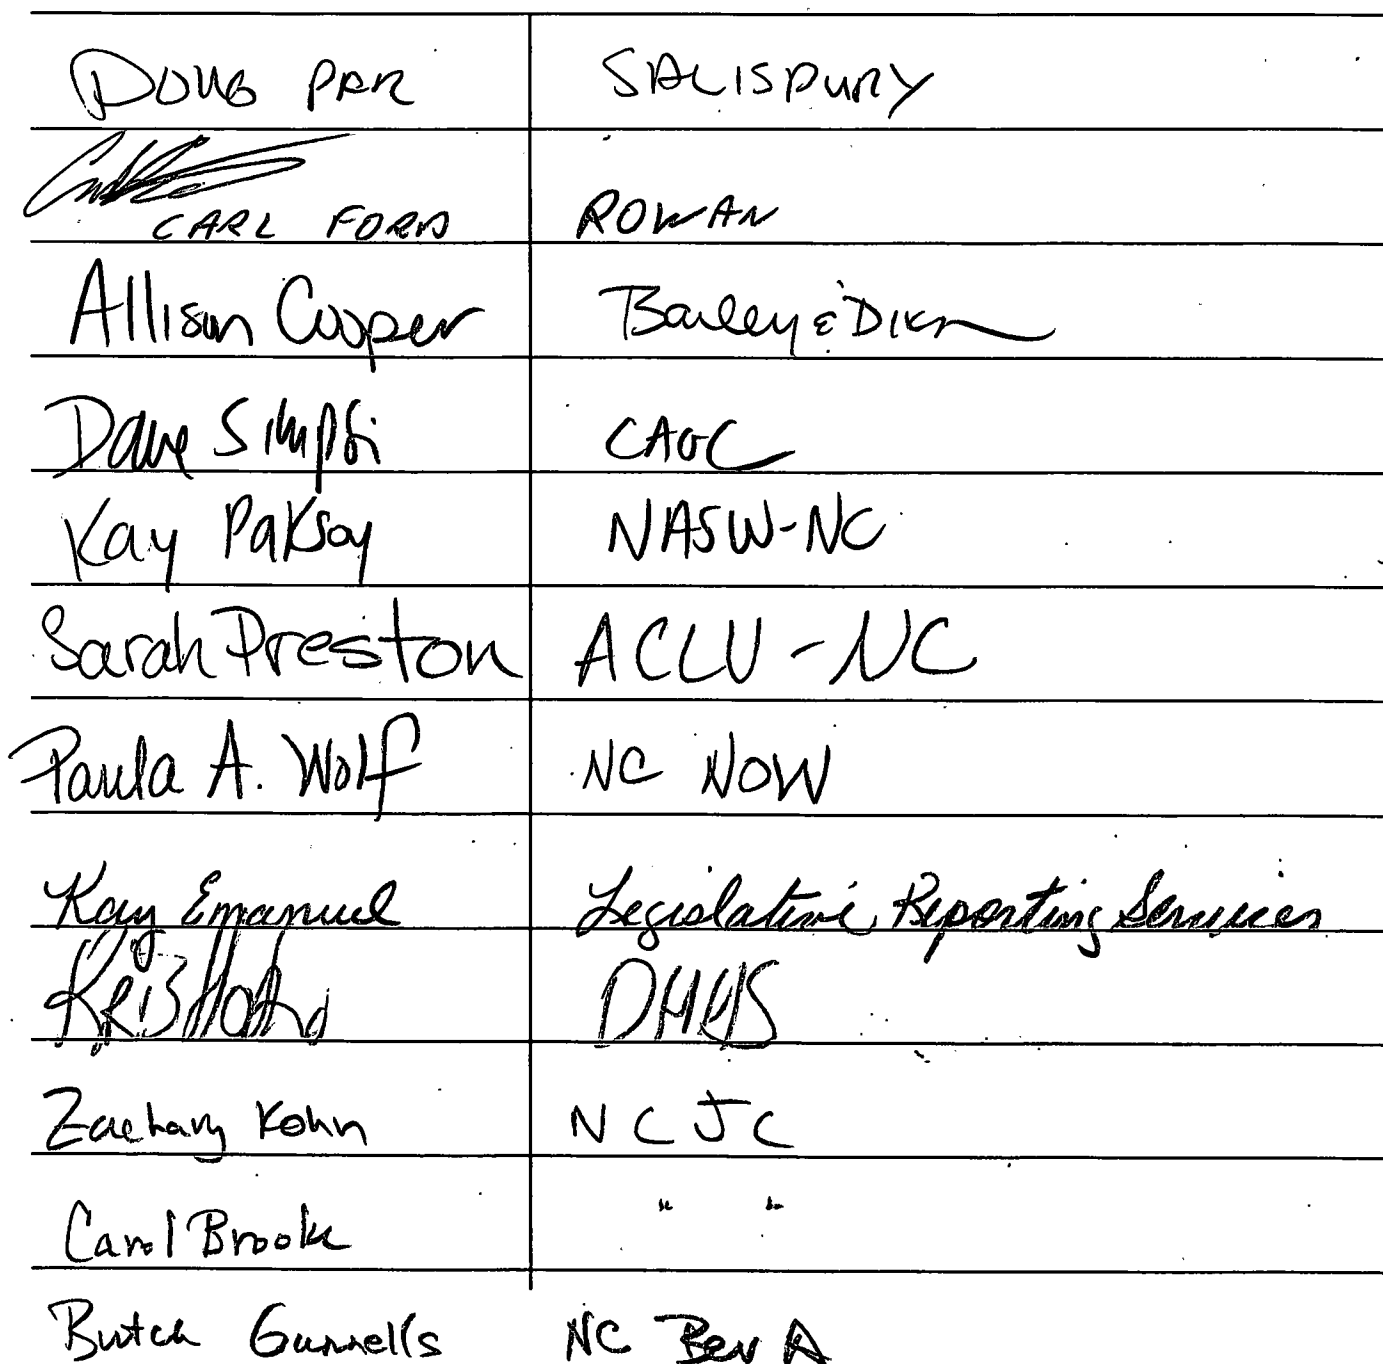 DOUG PARR SALISBURY
CARL FORD ROWAN
Allison Cooper Bailey & Dixon
Dave Simpson CAGC
Kay Paksoy NASW-NC
Sarah Preston ACLU-NC
Paula A. Wolf NC NOW
Kay Emanuel Legislative Reporting Services
KRIS DHHS
Zachary Kohn NCJC
Carol Brooke " "
Butch Gunnells NC Bev A